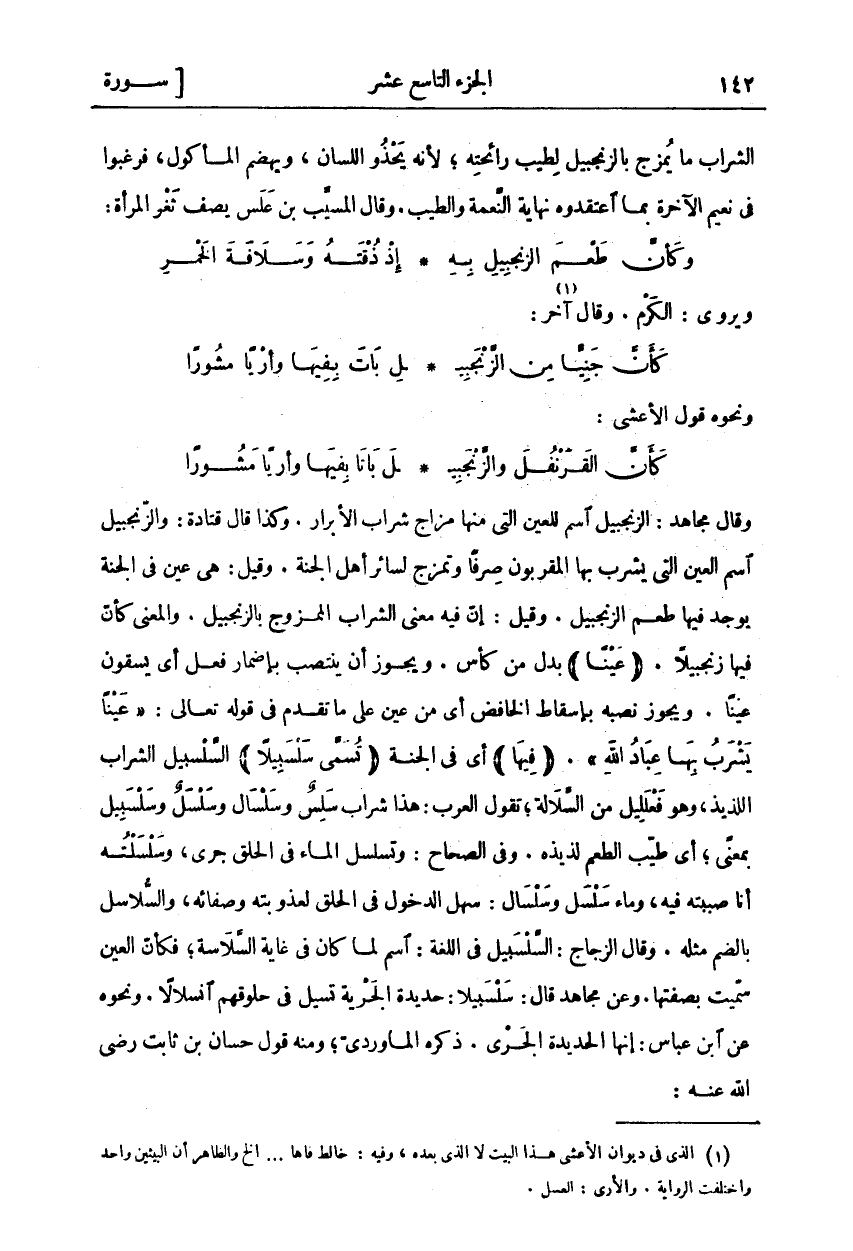 ١٤٢ الجزء التاسع عشر [ ســورة
الشراب ما يُمزج بالزنجبيل لِطيب رائحتِه ؛ لأنه يَحْذُو اللسان ، ويهضم المـأكول، فرغبوا
فى نعيم الآخرة بمـا ٱعتقدوه نهاية النَّعمة والطيب. وقال المسيَّب بن عَلَس يصف ثَغْر المرأة :
وكَأنَّ طَعْـمَ الزنجبِيلِ بِـهِ * إذْ ذُقْتَـهُ وَسَـلَافَةَ الخَمْـرِ
ويروى : الكَرْم . وقال آخر (١) :
كَأَنَّ جَنِيًّـا مِن الزَّنْجَبِيـ * ـلِ بَاتَ بِفِيهَـا وأَرْيًا مشُورًا
ونحوه قول الأعشى :
كَأَنَّ القَـرَنْفُـلَ والزَّنْجَبِيـ * ـلَ بَاتَا بِفِيهَـا وأَريًا مَشُـورًا
وقال مجاهد : الزنجبيل ٱسم للعين التى منها مزاج شراب الأبرار . وكذا قال قتادة : والزّنجبيل
ٱسم العين التى يشرب بها المقربون صِرفًا وتمزج لسائر أهل الجنة . وقيل : هى عين فى الجنة
يوجد فيها طعـم الزنجبيل . وقيل : إنّ فيه معنى الشراب الممـزوج بالزنجبيل . والمعنى كأنّ
فيها زنجبيلًا . ﴿ عَيْنًـا ﴾ بدل من كأس . ويجـوز أن ينتصب بإضمار فعـل أى يسقون
عينًا . ويجوز نصبه بإسقاط الخافض أى من عين على ما تقـدم فى قوله تعـالى : « عَيْنًا
يَشْرَبُ بِهَـا عِبَادُ اللهِ » . ﴿ فِيهَا ﴾ أى فى الجنـة ﴿ تُسَمَّى سَلْسَبِيلًا ﴾ السَّلْسبيل الشراب
اللذيذ، وهو فَعْلَلِيل من السَّلالة ؛ تقول العرب : هذا شراب سَلِسٌ وسَلْسَال وسَلْسَلٌ وسَلْسَبِيل
بمعنًى ؛ أى طيّب الطعم لذيذه . وفى الصحاح : وتسلسل المـاء فى الحلق جرى، وسَلْسَلْتُـه
أنا صببته فيه، وماء سَلْسَل وسَلْسَال : سهل الدخول فى الحلق لعذوبته وصفائه، والسُّلاسل
بالضم مثله . وقال الزجاج : السَّلْسَبِيل فى اللغة : ٱسم لمـا كان فى غاية السَّلَاسة ؛ فكأنّ العين
سمّيت بصفتها. وعن مجاهد قال : سَلْسَبِيلا : حديدة الجَرْية تسيل فى حلوقهم ٱنسلالًا . ونحوه
عن ٱبن عباس : إنها الحديدة الجَـرْى . ذكره المـاوردىّ ؛ ومنه قول حسان بن ثابت رضى
الله عنـه :
(١) الذى فى ديوان الأعشى هـذا البيت لا الذى بعده ، وفيه : خالط فاها ... الخ والظاهر أن البيتين واحد
واختلفت الرواية . والأرى : العسل .